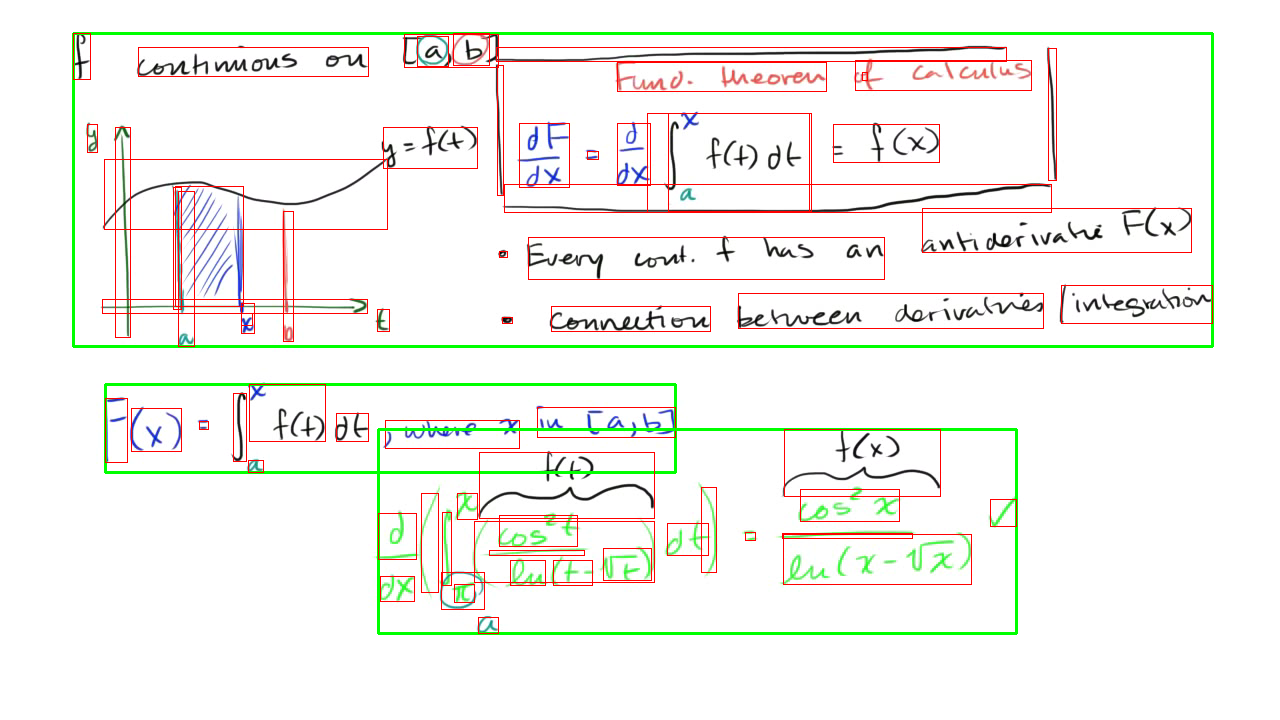 f continuous on [a, b]
Fund. theorem of calculus
y
y = f(t)
dF/dx = d/dx ∫_a^x f(t) dt = f(x)
• Every cont. f has an antiderivative F(x)
a x b t
• Connection between derivatives / integration
F(x) = ∫_a^x f(t) dt, where x in [a, b]
f(t) f(x)
d/dx ( ∫_π^x ( cos² t / ln(t - √t) ) dt ) = cos² x / ln(x - √x) ✓
a